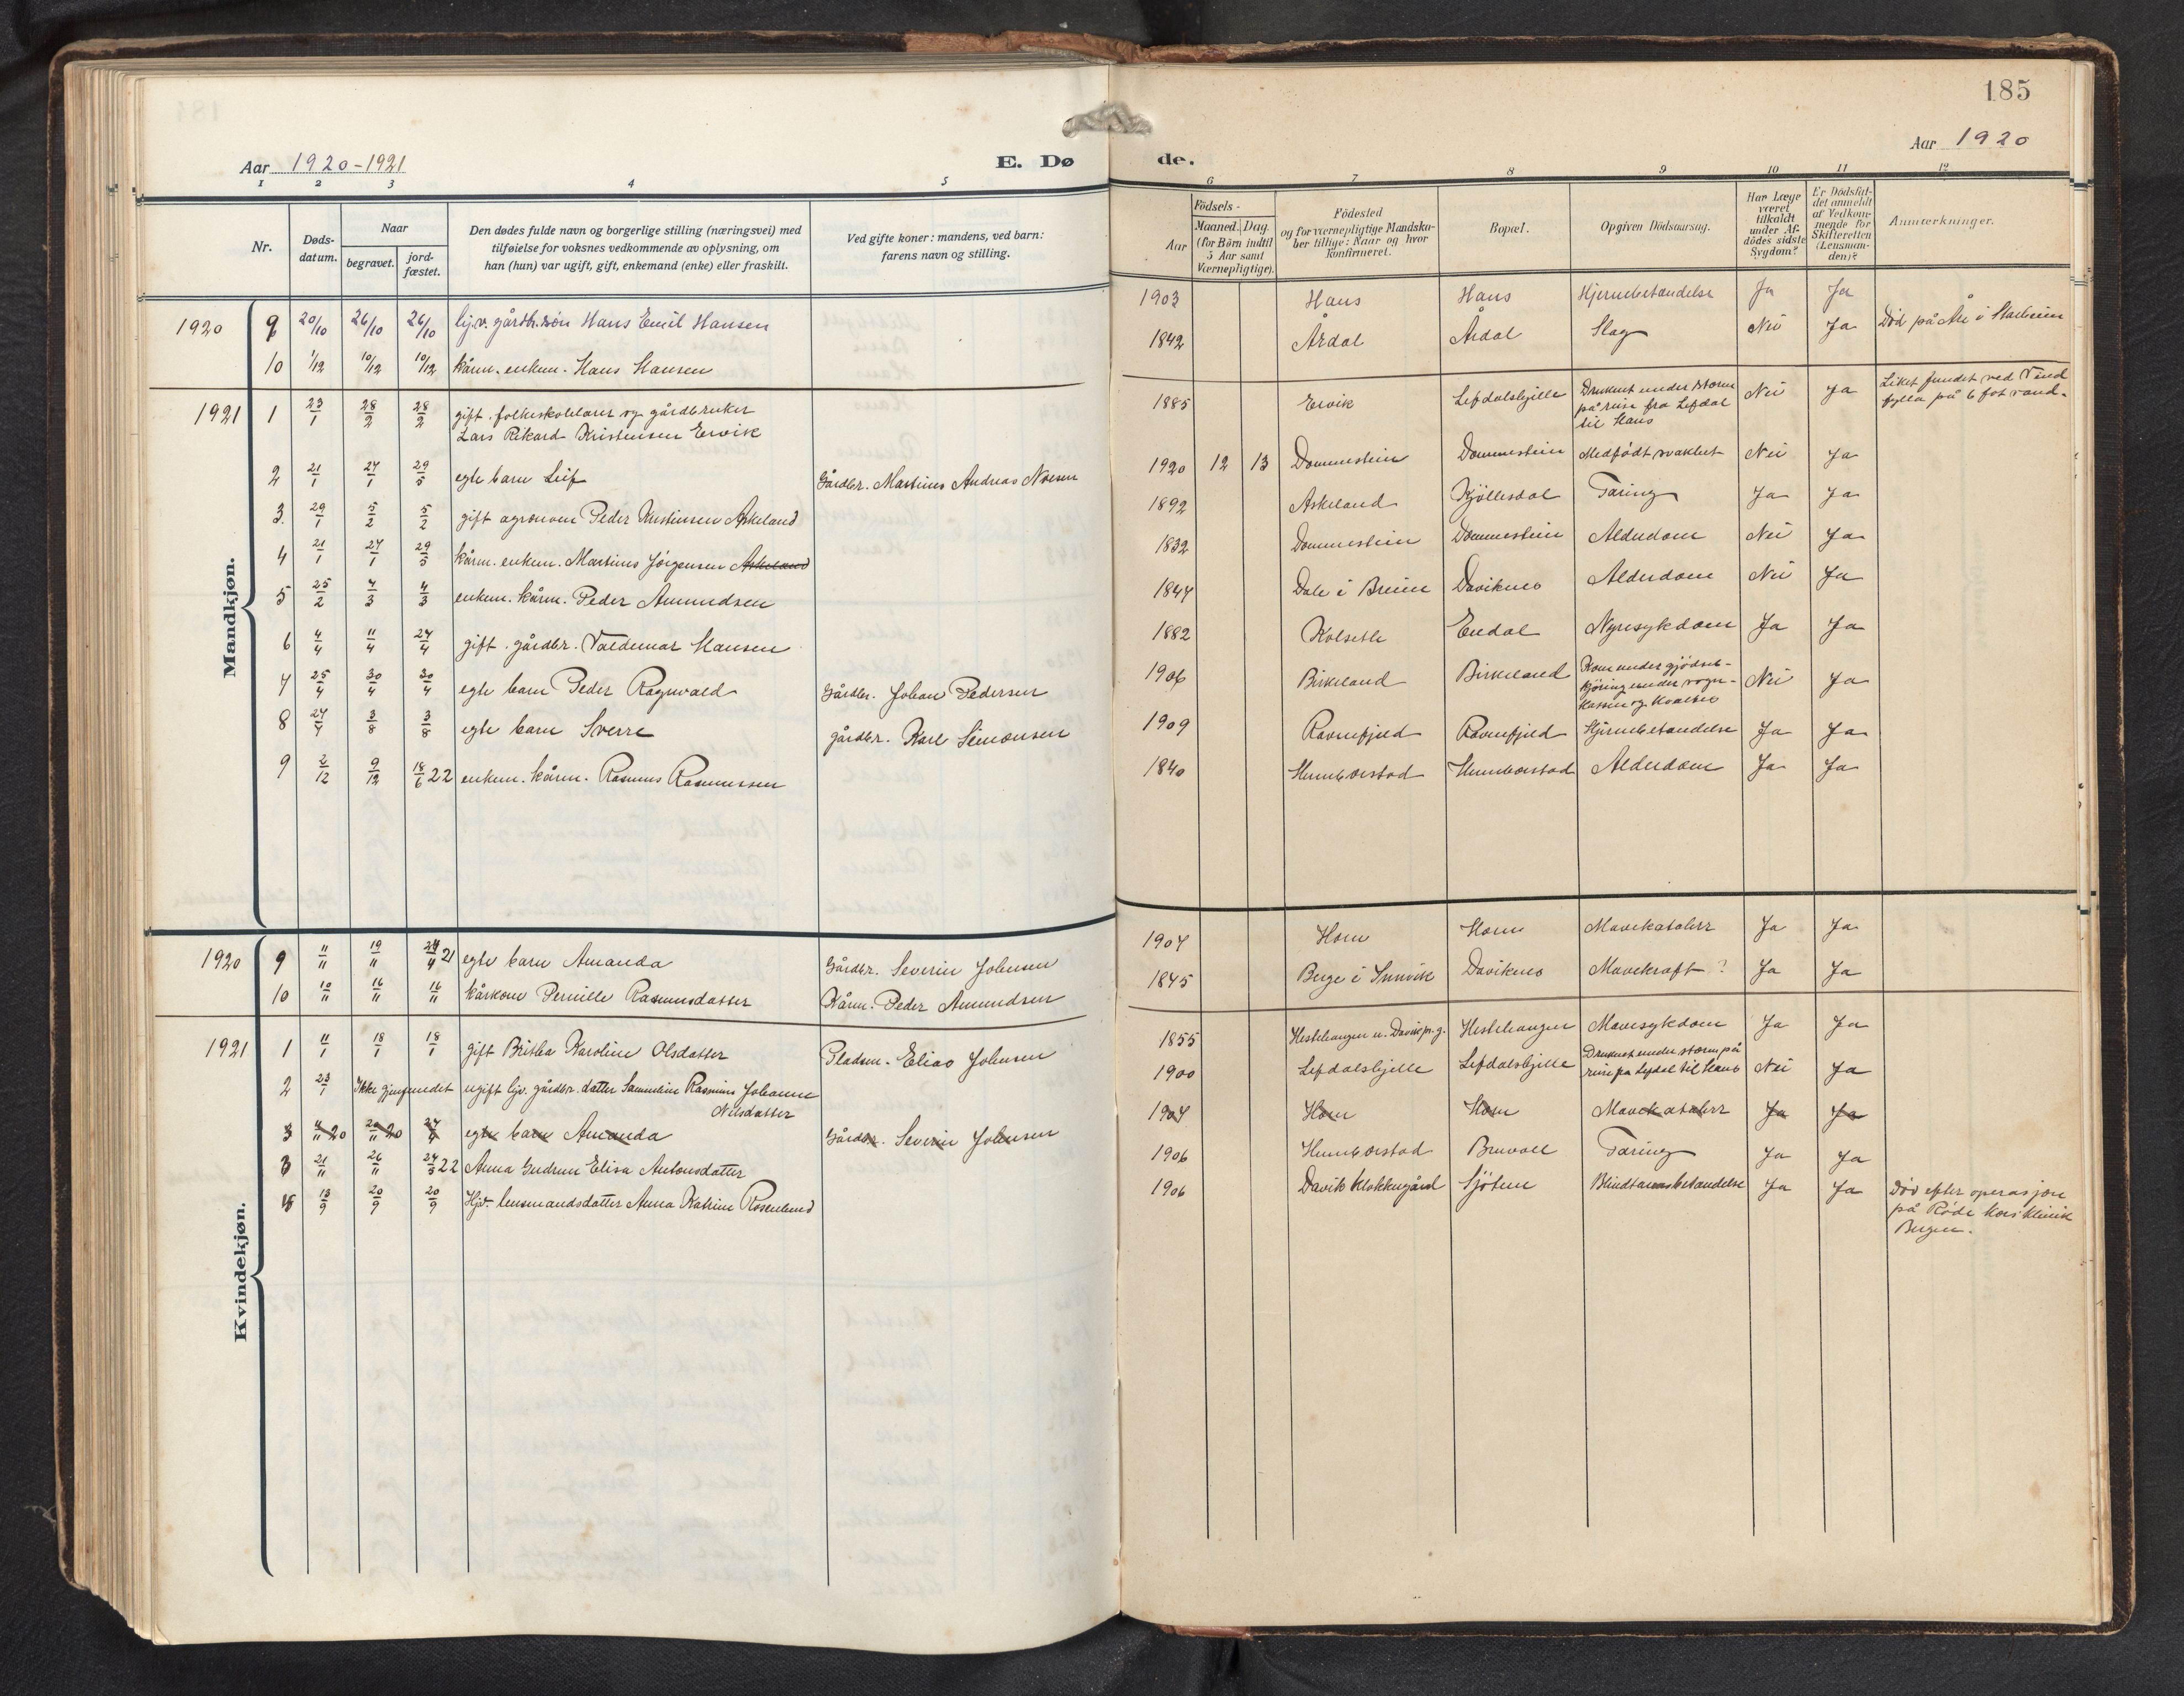 185
Aar 1920-1921
E. Dø
de.
Aar 1920
1 2 3 4 5
6 7 8 9 10 11 12
Nr.
Døds-
datum.
Naar
begravet.
jord-
fæstet.
Den dødes fulde navn og borgerlige stilling (næringsvei) med
tilføielse for voksnes vedkommende av oplysning, om
han (hun) var ugift, gift, enkemand (enke) eller fraskilt.
Ved gifte koner: mandens, ved barn:
farens navn og stilling.
Födsels-
Aar
Maaned. Dag.
(for Børn indtil
5 Aar samt
Værnepligtige).
Födested
og for værnepligtige Mandska-
ber tillige: Naar og hvor
konfirmeret.
Bopæl.
Opgiven Dödsaarsag.
Har Læge
været
tilkaldt
under Af-
dödes sidste
Sygdom?
Er Dödsfal-
det anmeldt
af Vedkom-
mende for
Skifteretten
(Lensman-
den)?
Anmærkninger.
Mandkjøn.
1920 9 20/10 26/10 26/10 hj.v. gårdbr.søn Hans Emil Hansen 1903 Haus Haus Hjernebetændelse Ja Ja
10 1/12 10/12 10/12 kårm. enkem. Hans Hansen 1842 Årdal Årdal Slag Nei Ja Död på Åe i Starheim
1921 1 23/1 28/2 28/2 gift. folkeskolelærer og gårdbruker
Lars Rikard Kristensen Ervik 1885 Ervik Lefdalsbjille Druknet under storm
på reise fra Lefdal
til Haus Nei Ja Liket fundet ved Vind
fylla på 6 fot vand.
2 21/1 27/1 29/5 egte barn Leif Gårdbr. Martinus Andreas Nilsen 1920 12 13 Dommestein Dommestein Medfødt svakhet Nei Ja
3. 29/1 5/2 5/2 gift agronom Peder Kristensen Askeland 1892 Askeland Kjöllesdal Tæring Ja Ja
4 21/1 27/1 29/5 kårm. enkem. Martinus Jörgensen Askeland 1832 Dommestein Dommestein Alderdom Nei Ja
5 25/2 4/3 4/3 enkem. kårm. Peder Amundsen 1847 Dale i Breim Daviknes Alderdom Nei Ja
6 4/4 11/4 24/4 gift. gårdbr. Valdemar Hansen 1882 Kolseth Endal Nyresykdom Ja Ja
7 25/4 30/4 30/4 egte barn Peder Ragnvald Gårdbr. Johan Pedersen 1906 Birkeland Birkeland Kom under gjödsel-
kjöring under vogn-
kassen og kvaltes Nei Ja
8 27/7 3/8 3/8 egte barn Sverre gårdbr. Karl Simonsen 1909 Ravnefjeld Ravnefjeld Hjernebetændelse Ja Ja
9 2/12 9/12 18/6 22 enkem. kårm. Rasmus Rasmussen 1840 Humborstad Humborstad Alderdom Ja Ja
Kvindekjøn.
1920 9 11/11 19/11 24/4 21 egte barn Amanda Gårdbr. Severin Johnsen 1907 Horn Horn Mavekatahrr Ja Ja
10 10/11 16/11 16/11 kårkone Pernille Rasmusdatter Kårm. Peder Amundsen 1845 Berge i Innvik Daviknes Mavekræft? Ja Ja
1921 1 11/1 18/1 18/1 gift Britha Karoline Olsdatter Pladsm. Elias Johnsen 1855 Hestehaugen u. Davik pr.g. Hestehaugen Mavesykdom Ja Ja
2 23/1 Ikke gjenfundet ugift hjv. gårdbr. datter Samueline Rasmine Johanne
Nilsdatter 1900 Lefdalsbjille Lefdalsbjille Druknet under storm på
reise fra Lefdal til Haus Nei Ja
3 11/11 20 20/11 20 24/4 egte barn Amanda Gårdbr. Severin Johnsen 1907 Horn Horn Mavekatahrr Ja Ja
3 21/11 26/11 24/5 22 Anna Gudrun Elisa Antonsdatter 1906 Humborstad Bruvoll Tæring Ja Ja
4 13/9 20/9 20/9 Hjv. lensmandsdatter Anna Katrine Rosenlund 1906 Davik klokkergård Sjötun Blindtarmsbetændelse Ja Ja Död efter operasjon
på Röde Kors Klinik
Bergen.